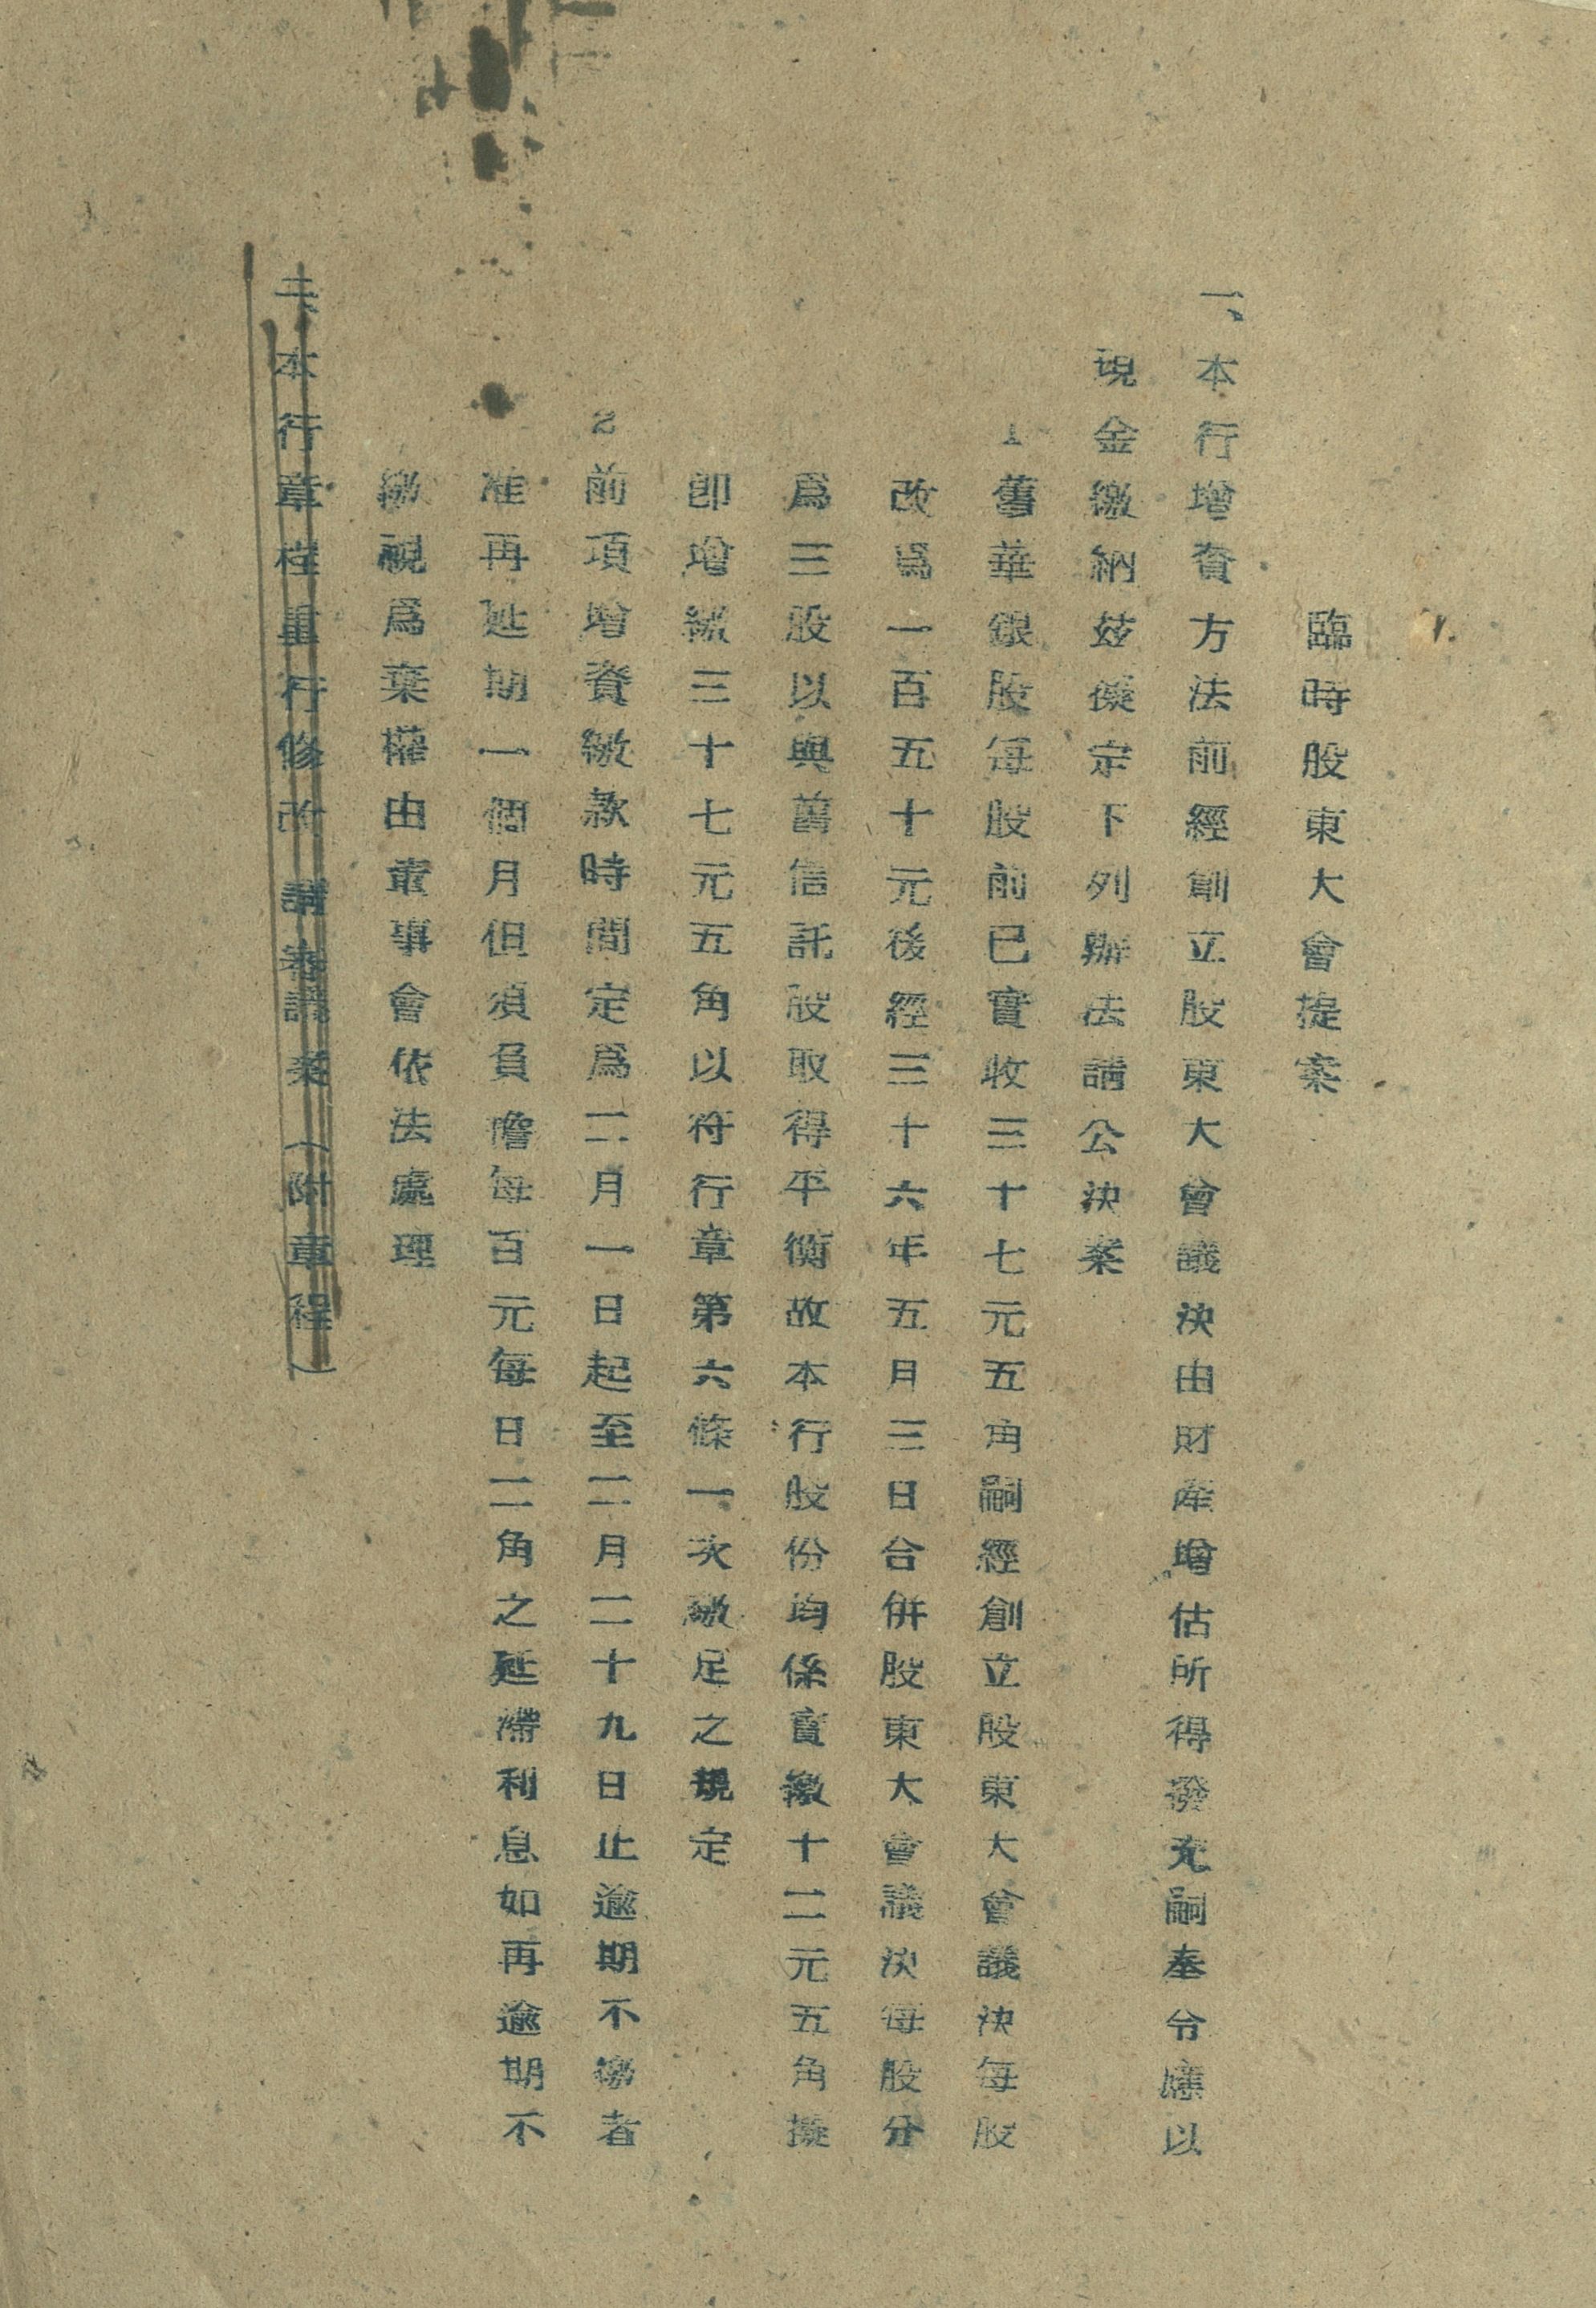 臨時股東大會提案
一、本行增資方法前經創立股東大會議決由財產增估所得撥充嗣奉令應以
現金繳納茲擬定下列辦法請公決案
1舊華銀股每股前已實收三十七元五角嗣經創立股東大會議決每股
改爲一百五十元後經三十六年五月三日合併股東大會議決每股分
爲三股以與舊信託股取得平衡故本行股份均係實繳十二元五角擬
卽增繳三十七元五角以符行章第六條一次繳足之規定
2前項增資繳款時間定爲二月一日起至二月二十九日止逾期不繳者
准再延期一個月但須負擔每百元每日二角之延滯利息如再逾期不
繳視爲棄權由董事會依法處理
本行章程重行修改請議案(附章程)